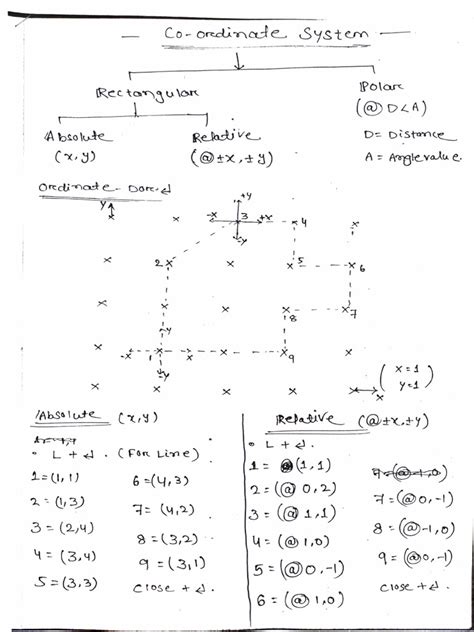 Co-ordinate System
Rectangular
Polar
(@ D<A)
Absolute
(x,y)
Relative
(@±x,±y)
D = Distance
A = Angle value.
Ordinate
Y
+y
-x 3 +x
-y
4
x
2
5
6
8
7
-y
-x 1 x
-y
9
x
(x=1
y=1)
Absolute (x,y)
L + ↲. (For Line)
1 = (1,1)
2 = (1,3)
3 = (2,4)
4 = (3,4)
5 = (3,3)
6 = (4,3)
7 = (4,2)
8 = (3,2)
9 = (3,1)
close + ↲.
Relative (@±x,±y)
L + ↲.
1 = (1,1)
2 = (@ 0,2)
3 = (@ 1,1)
4 = (@ 1,0)
5 = (@ 0,-1)
6 = (@ 1,0)
7 = (@ 0,-1)
8 = (@ -1,0)
9 = (@ 0,-1)
close + ↲.